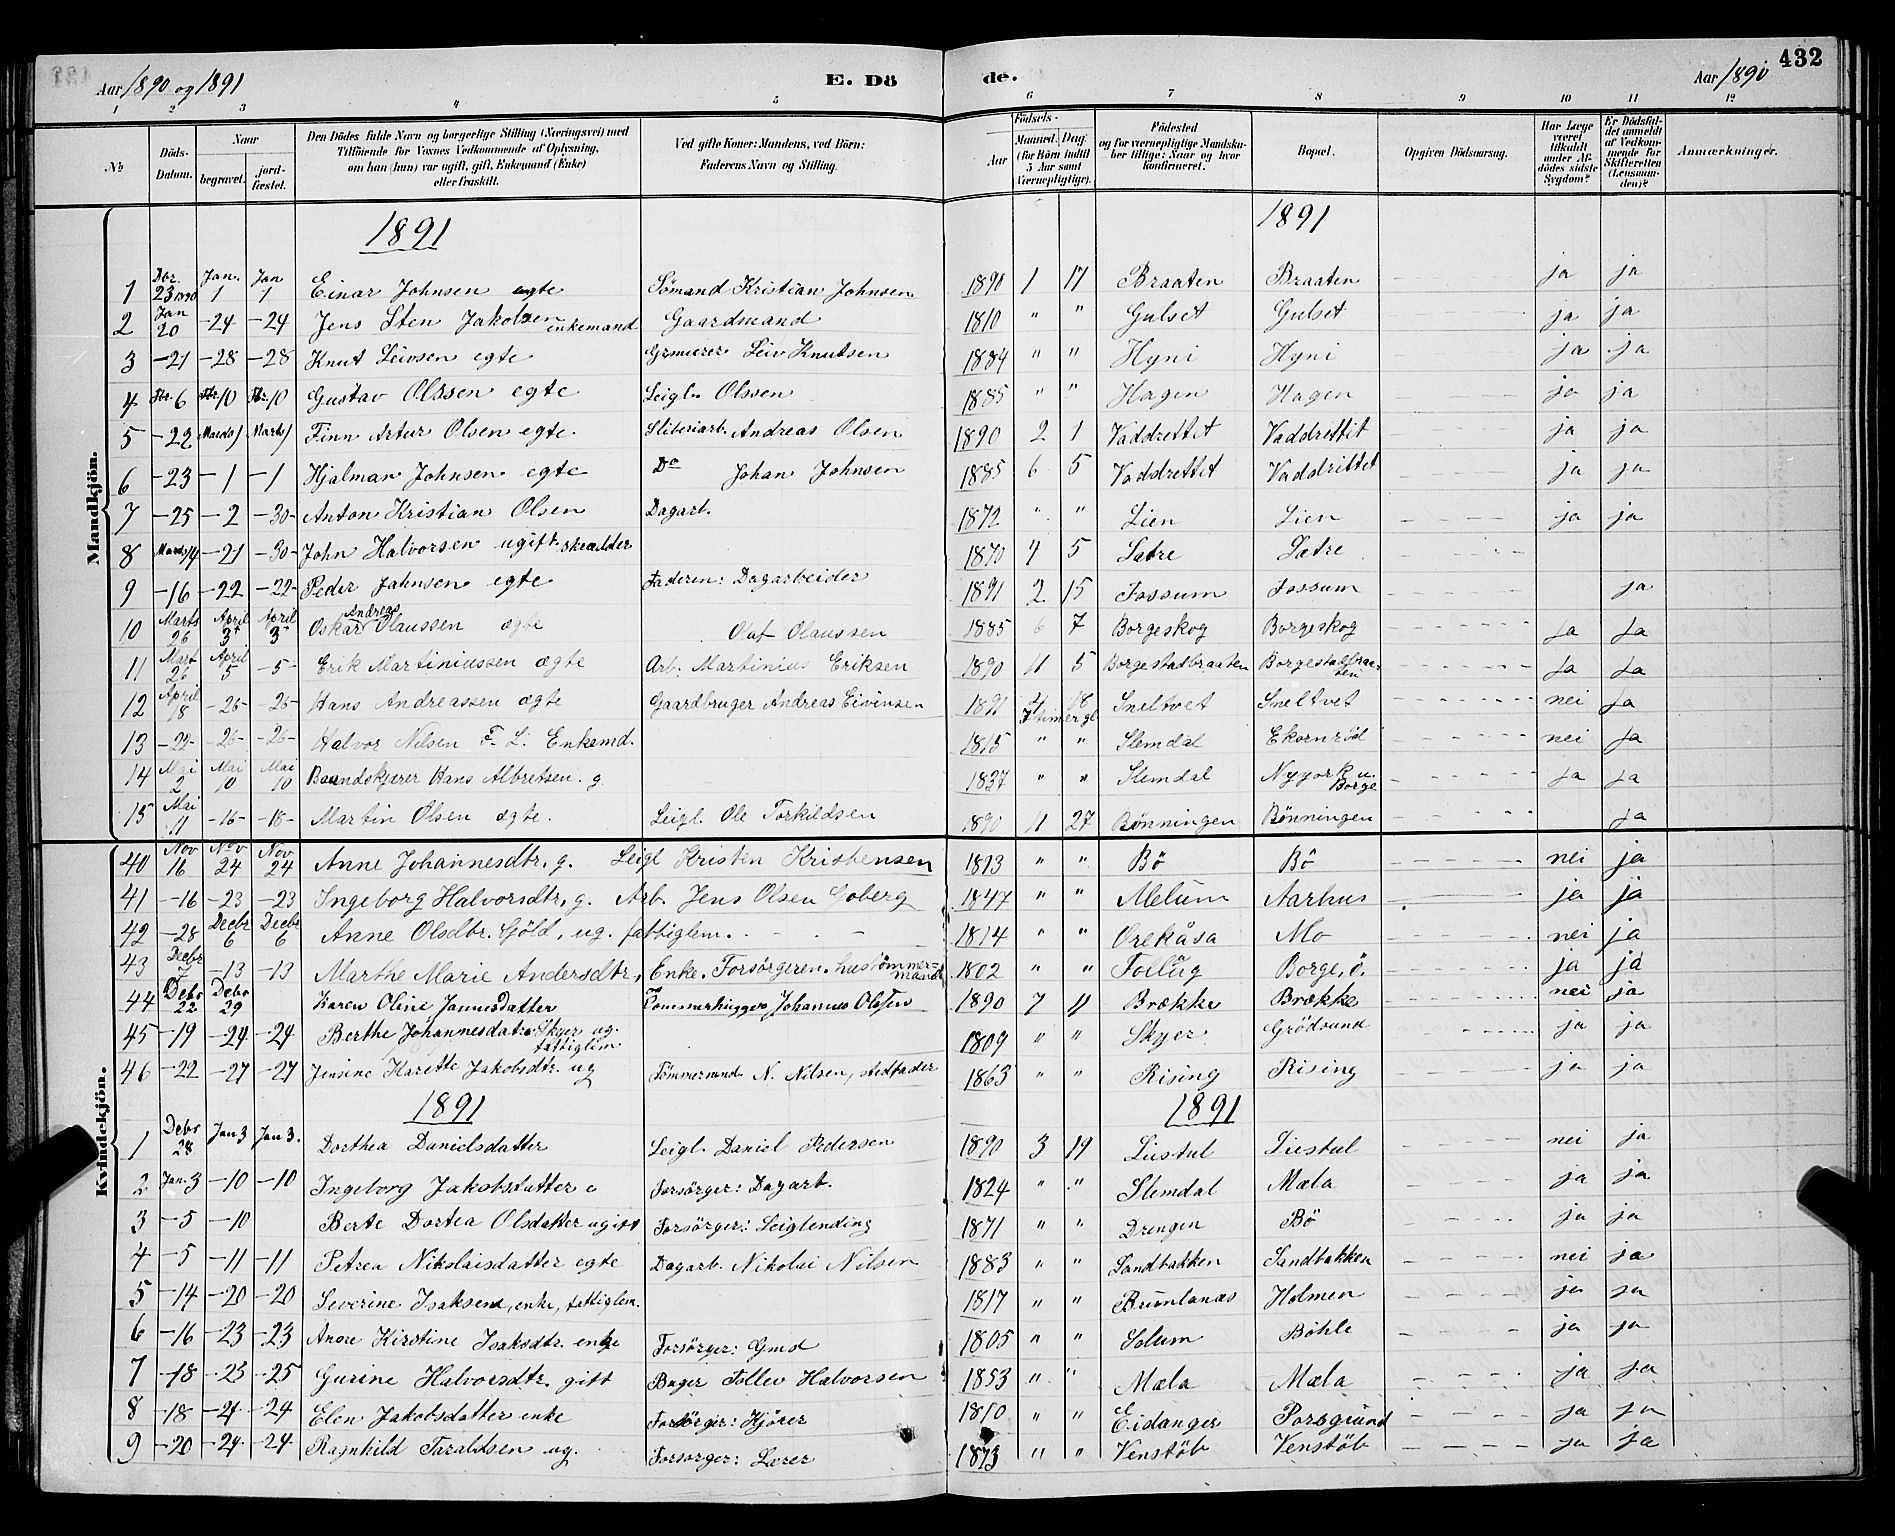 432
Aar 1890 og 1891 E. Dö de. Aar 1890
1 2 3 4 5 6 7 8 9 10 11 12
No Döds-Datum. Naar begravet. jord-fæstet. Den Dödes fulde Navn og borgerlige Stilling (Næringsvei) med Tilföiende for Voxnes Vedkommende af Oplysning, om han (hun) var ugift, gift, Enkemand (Enke) eller fraskilt. Ved gifte Koner: Mandens, ved Börn: Faderens Navn og Stilling. Födsels- Aar Maaned. Dag. (for Börn indtil 5 Aar samt Værnepligtige). Födested og for værnepligtige Mandskaber tillige: Naar og hvor konfirmeret. Bopæl. Opgiven Dödsaarsag. Har Læge været tilkaldt under Afdödes sidste Sygdom? Er Dödsfaldet anmeldt af Vedkommende for Skifteretten (Lensmanden)? Anmærkninger.
Mandkjön.
1891 1891
1 Dbr. 23 1890 Jan. 1 Jan 1 Einar Johnsen egte Sömand Kristian Johnsen 1890 1 17 Braaten Braaten ja ja
2 Jan 20 -24 -24 Jens Sten Jakobsen enkemand Gaardmand 1810 " " Gulset Gulset ja ja
3 -21 -28 -28 Knut Leivsen egte Leiv Knutsen 1884 " " Hyni Hyni ja ja
4 Fbr. 6 Fbr 10 Fbr. 10 Gustav Olssen egte Leigl. Olssen 1885 " " Hagen Hagen ja ja
5 -22 Marts 1 Marts 1 Finn Artur Olsen egte. Sliberiarb. Andreas Olsen 1890 2 1 Vaddrettet Vaddrettit ja ja
6 -23 -1 -1 Hjalmar Johnsen egte Do Johan Johnsen 1885 6 5 Vaddrettet Vaddrittet ja ja
7 -25 -2 -30- Anton Kristian Olsen Dagarb. 1872 " " Lien Lien ja ja
8 Marts 14 -21 -30- John Halvorsen ugift skrædder 1870 4 5 Sætre Sætre
9 -16 -22 -22- Peder Jahnsen egte Faderen: Dagarbeider 1891 2 15 Fossum Fossum ja
10 Marts 26 April 3 April 3 Oskar Andreas Olaussen ægte Olaf Olaussen 1885 6 7 Borgeskog Borgeskog ja ja
11 Mart 26 April 5 -5- Erik Martiniussen ægte Arb. Martinius Eriksen 1890 11 5 Borgestadbraaten Borgestadbraaten ja ja
12 April 18 -26- -26- Hans Andreassen ægte Gaardbruger Andreas Eivinsen 1891 4 18 7 timer gl Sneltvet Sneltvet nei ja
13 -22- -26- -26- Halvor Nilsen F. L. Enkemd. 1815 " " Slemdal Ekornröd nei ja
14 Mai 2 Mai 10 Mai 10 Baandskjærer Hans Albretsen. g. 1837 " " Slemdal Nyyork u. Borge ja ja
15 Mai 11 -16- -18- Martin Olsen ægte. Leigl. Ole Torkildsen 1890 11 27 Bönningen Bönningen ja
Kvindekjön.
40 Nov 16 Nov 24 Nov 24 Anne Johannesdtr. g. Leigl Kristen Kristensen 1813 " " Bö Bö nei ja
41 -16 -23 -23 Ingeborg Halvorsdtr, g. Arb. Jens Olsen Goberg 1847 " " Melum Aarhus ja ja
42 -28 Decbr 6 Decbr 6 Anne Olsdtr. Göld, ug. fattiglem. 1814 " " Orekåsa Mo nei ja
43 Decbr 7 -13 -13 Marthe Marie Andersdtr, Enke. Forsörgeren hustömmermand 1802 " " Follug Borge, ö. ja ja
44 Debr 22 Debr 29 Karen Oline Jannesdatter Tømmerhugger Johannes Olsen 1890 7 11 Brække Brække nei ja
45 -19 -24 -24 Berthe Johannesdatr. Skyer ug. fattiglem 1809 " " Skyer Grödsund ja ja
46 -22 -27 -27 Jensine Karette Jakobsdtr. ug Tömmermd. N. Nilsen, stedfader 1863 " " Rising Rising ja ja
1891 1891
1 Debr 28 Jan 3 Jan 3. Dorthea Danielsdatter Leigl. Daniel Pedersen 1890 3 19 Liestul Liestul nei ja
2 Jan. 3 -10 -10 Ingeborg Jakobsdatter e Forsörger: Dagarb. 1824 " " Slemdal Mæla ja ja
3 -5 -10 Berte Dortea Olsdatter ugift Forsörger: Leiglending 1871 " " Drengen Bö ja ja
4 -5 -11 -11 Petrea Nikolaisdatter egte Dagarb. Nikolai Nilsen 1883 " " Sandbakken Sandbakken nei ja
5 -14 -20 -20 Severine Isaksen, enke, fattiglem. 1817 " " Brunlanæs Holmen ja ja
6 -16 -23 -23 Anne Kirstine Isaksdtr. enke Forsörger: Gmd 1805 " " Solum Böhle ja ja
7 -18 -25 -25 Gurine Halvorsdtr. gift Bager Tollev Halvorsen 1853 " " Mæla Mæla ja ja
8 -18 -24 -24 Elen Jakobsdatter enke Forsörger: Hjörer 1810 " " Eidanger Porsgrund ja ja
9 -20 -24 -24 Ragnhild Taraldsen ug. Forsorger: Lærer 1873 " " Venstöb Venstöb ja ja